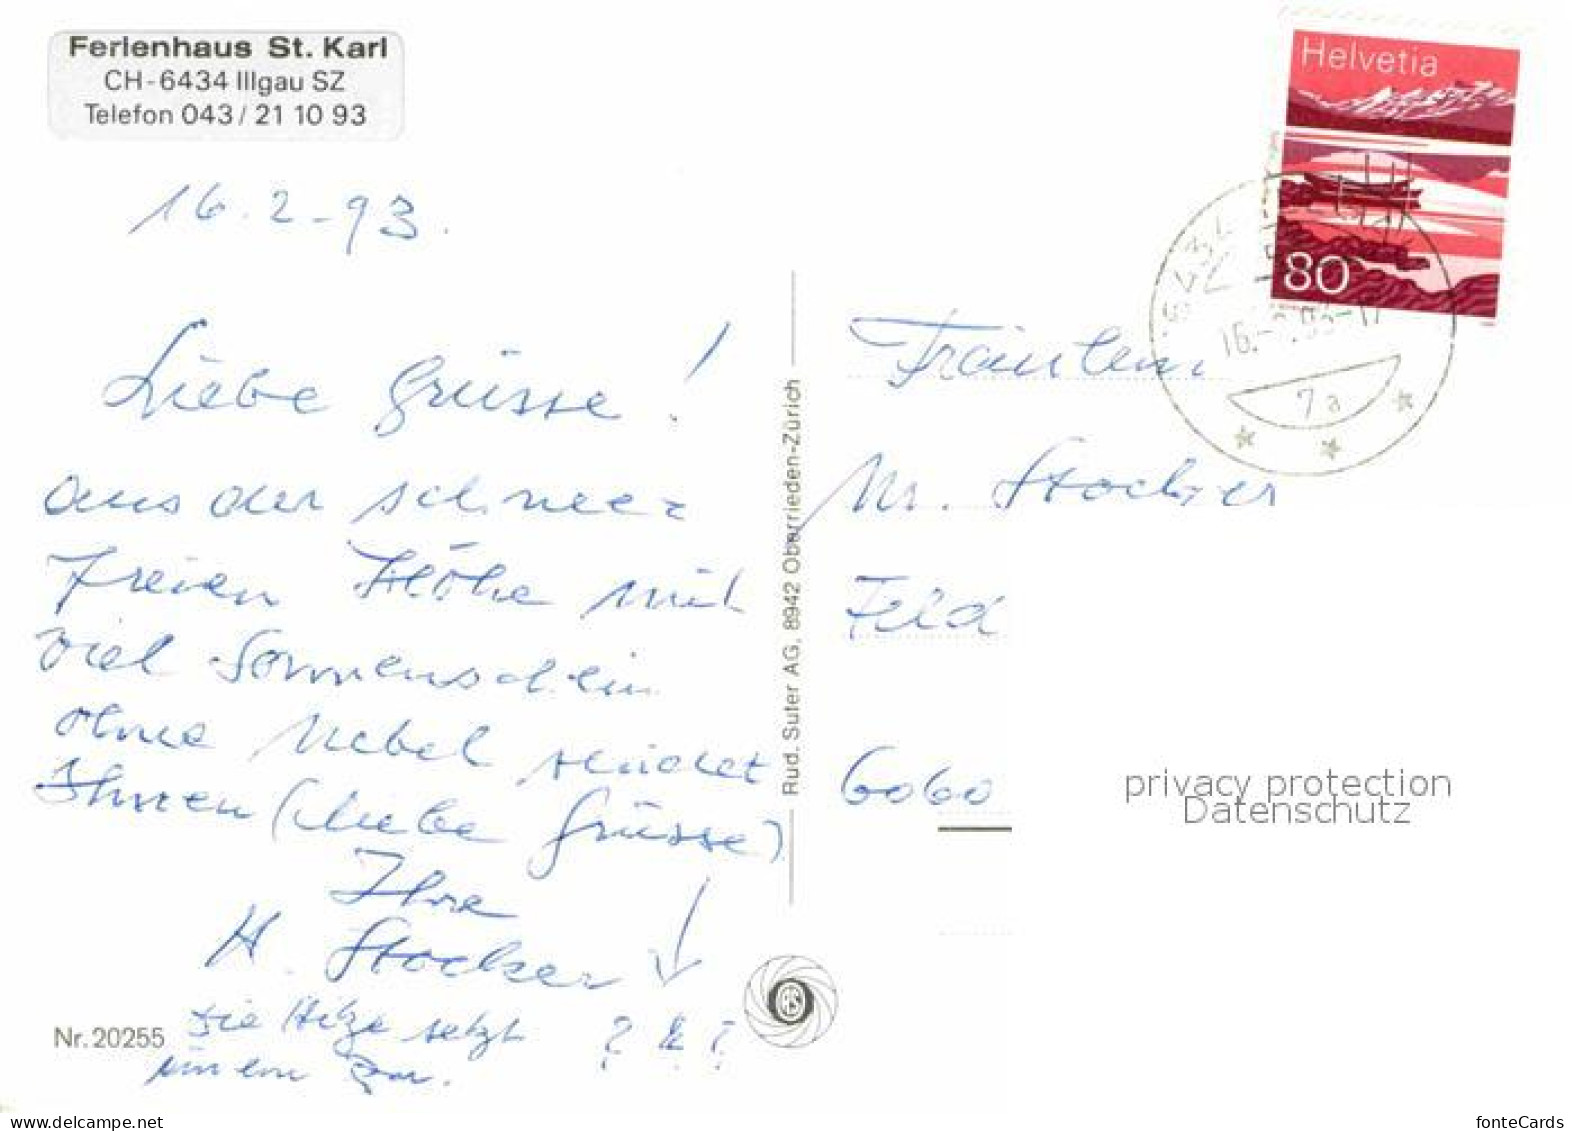 Ferienhaus St. Karl
CH-6434 Illgau SZ
Telefon 043/21 10 93
Helvetia
80
16.2-93.
Liebe Grüsse!
aus der schnee=
freien Höhe mit
viel Sonnenschein
ohne Nebel sendet
Ihnen (liebe Grüsse)
Ihre
H. Stocker
Die Hitze setzt
uns ein
? & ?
Nr. 20255
Rud. Suter AG, 8942 Oberrieden-Zürich
6434
7a
Fräulein
M. Stocker
Feld
6060
privacy protection
Datenschutz
www.delcampe.net
fonteCards